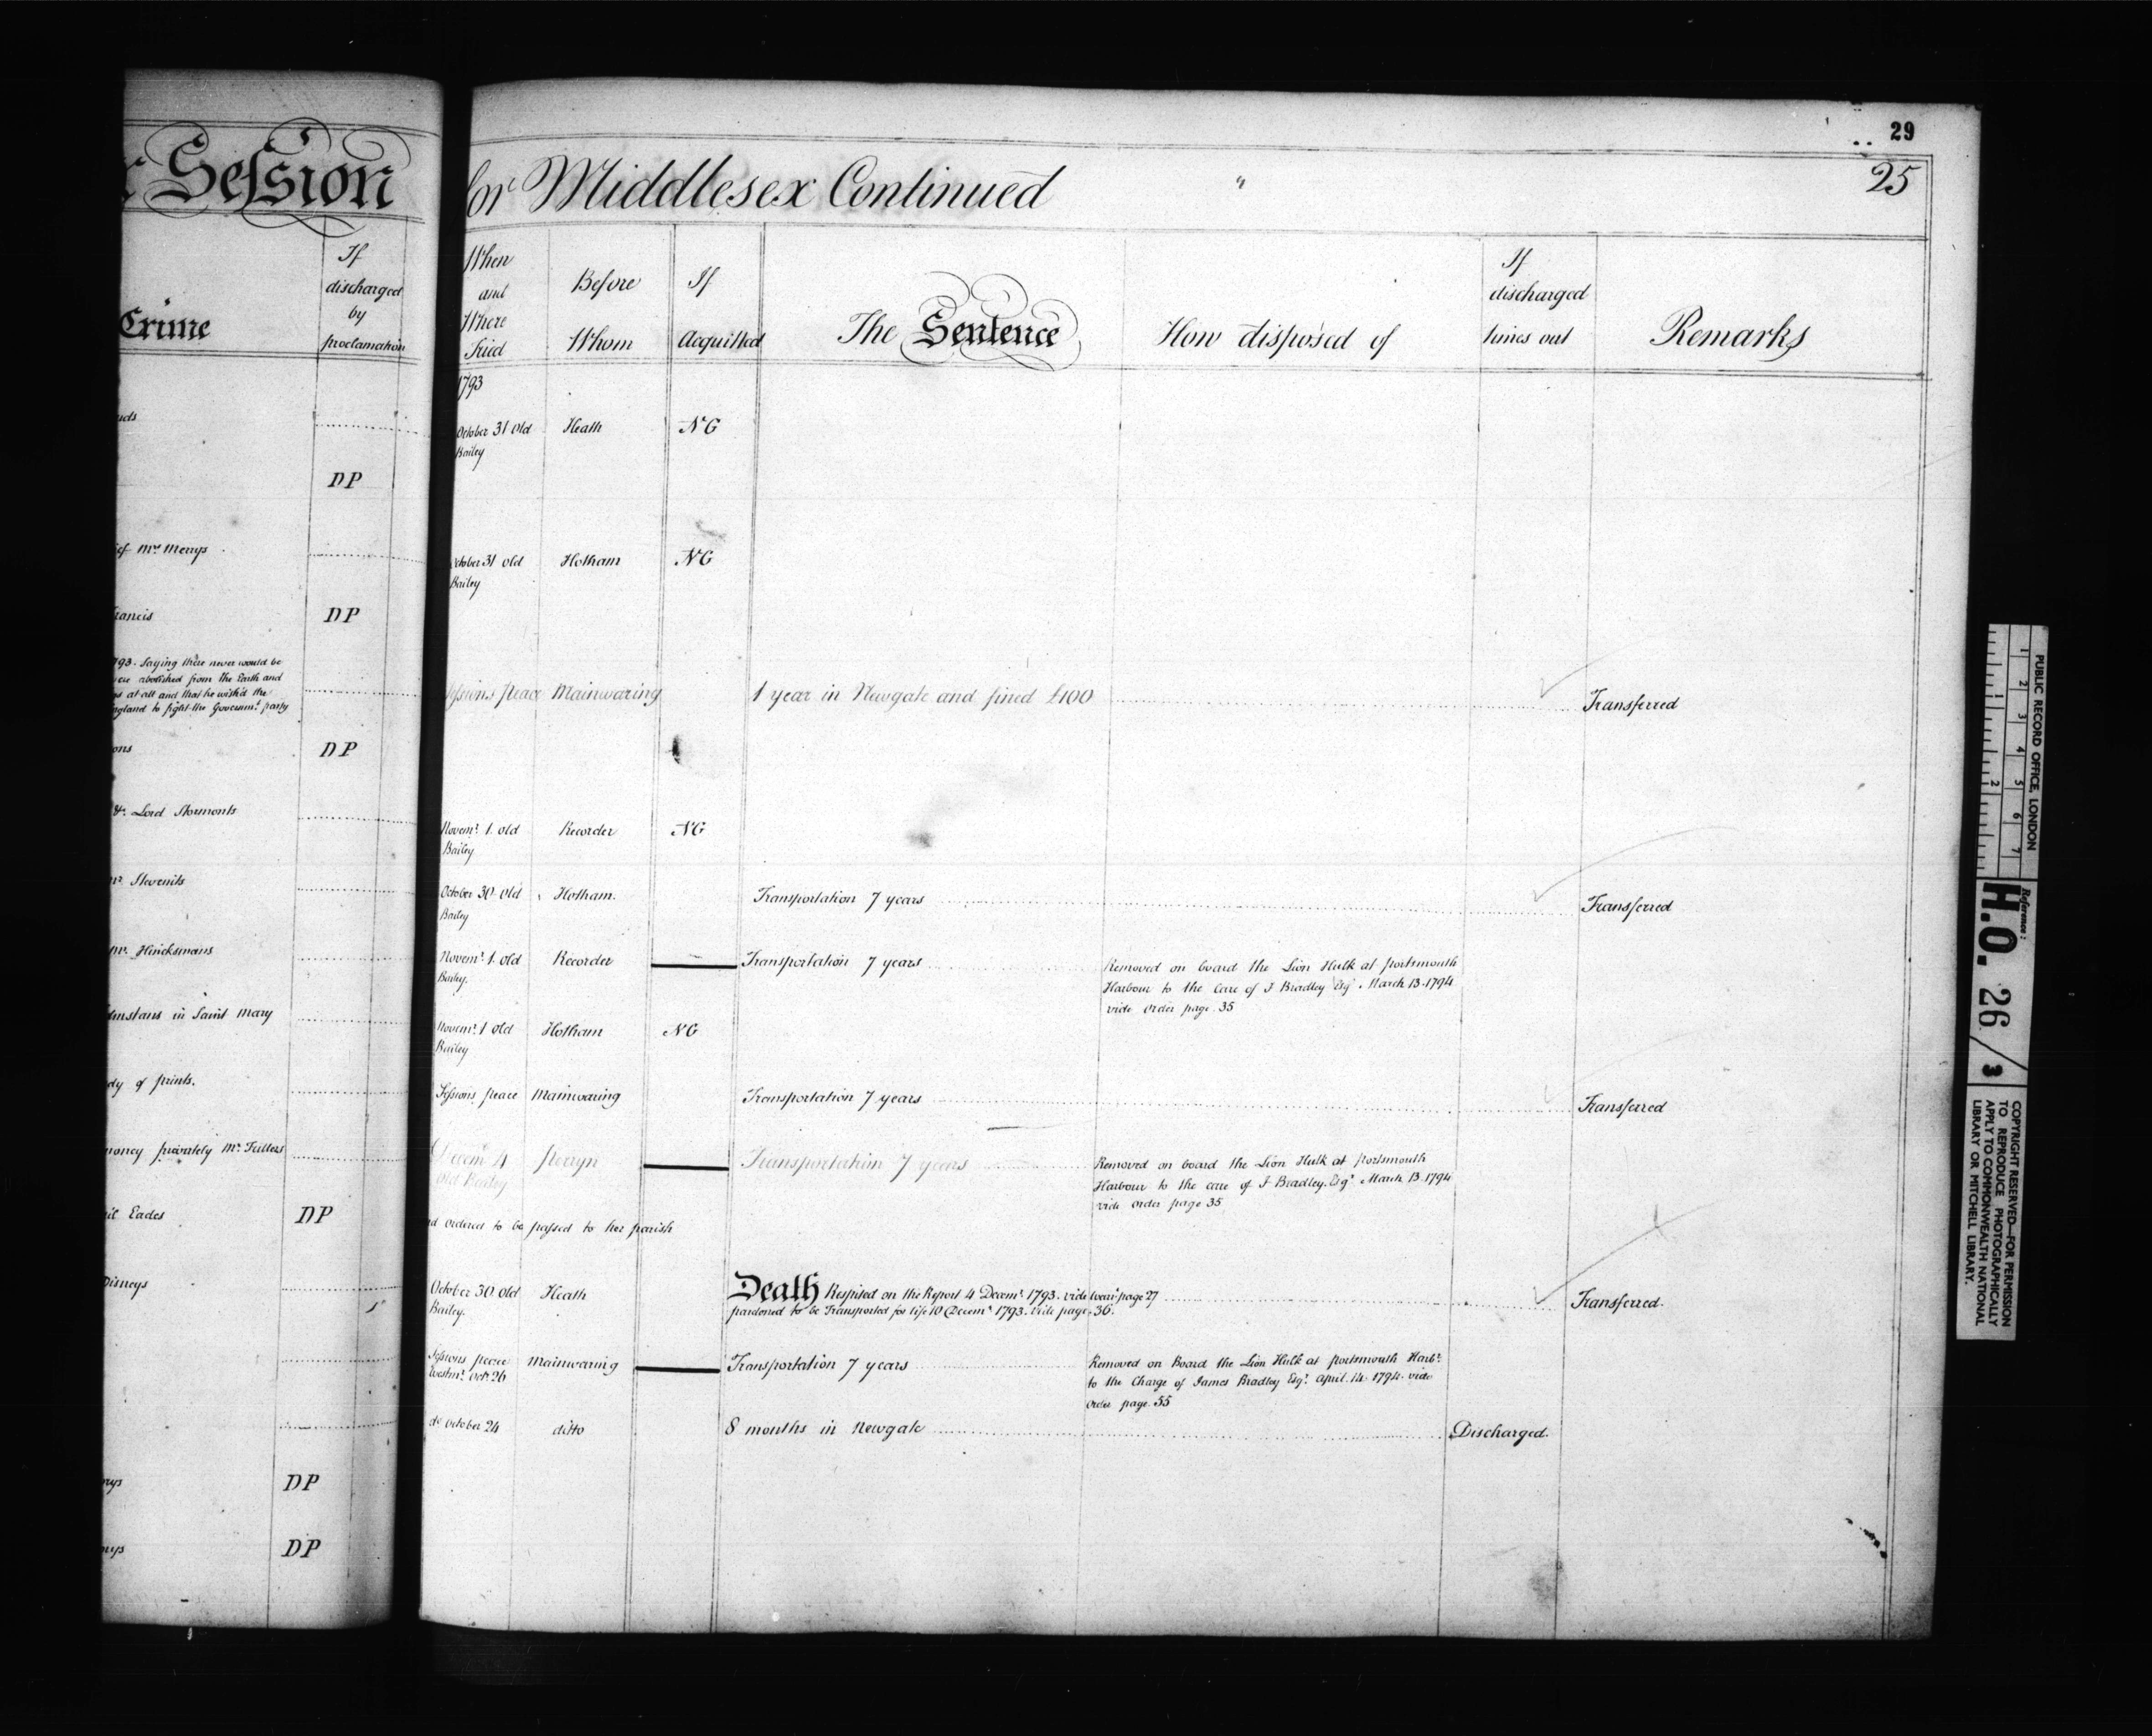 Session
Crime
If
discharged
by
proclamation
DP
Mr. Merrys
DP
Saying there never would be
abolished from the Earth and
at all and that he wish'd the
to fight the Governmt. party
DP
Lord Stormonts
Stevenits
Hincksmans
in Saint Mary
of prints.
privately Mr. Fullers
Eades DP
Disneys
DP
DP
29
for Middlesex Continued 25
When
and
Where
Tried
Before
Whom
If
Acquitted
The Sentence
How disposed of
If
discharged
times out
Remarks
1793
October 31 Old Heath NG
Bailey
October 31 old Hotham NG
Bailey
Sessions peace Mainwaring 1 year in Newgate and fined £100 Transferred
Novemr. 1. old Recorder NG
Bailey
October 30 old Hotham. Transportation 7 years Transferred
Bailey
Novemr. 1. old Recorder Transportation 7 years Removed on board the Lion Hulk at portsmouth
Bailey. Harbour to the care of J Bradley Esqr. March 13. 1794
vide order page. 35
Novemr. 1 old Hotham NG
Bailey
Sessions peace Mainwaring Transportation 7 years Transferred
Decemr 4 Perryn Transportation 7 years Removed on board the Lion Hulk at portsmouth
Old Bailey Harbour to the care of J Bradley. Esqr. March 13. 1794
vide order page 35
ordered to be passed to her parish
October 30 old Heath Death Respited on the Report 4 Decemr. 1793. vide page 27
Bailey. pardoned to be Transported for life 10 Decemr. 1793. vide page. 36. Transferred.
Sessions peace Mainwaring Transportation 7 years Removed on Board the Lion Hulk at portsmouth Harbr.
Westmr. Octr. 26 to the Charge of James Bradley Esqr. April. 14. 1794. vide
order page. 55
do October 24 ditto 8 months in Newgate Discharged.
PUBLIC RECORD OFFICE, LONDON
1 2 3 4 5 6 7
1 2
Reference:
H.O. 26/3
COPYRIGHT RESERVED—FOR PERMISSION
TO REPRODUCE PHOTOGRAPHICALLY
APPLY TO COMMONWEALTH NATIONAL
LIBRARY OR MITCHELL LIBRARY.